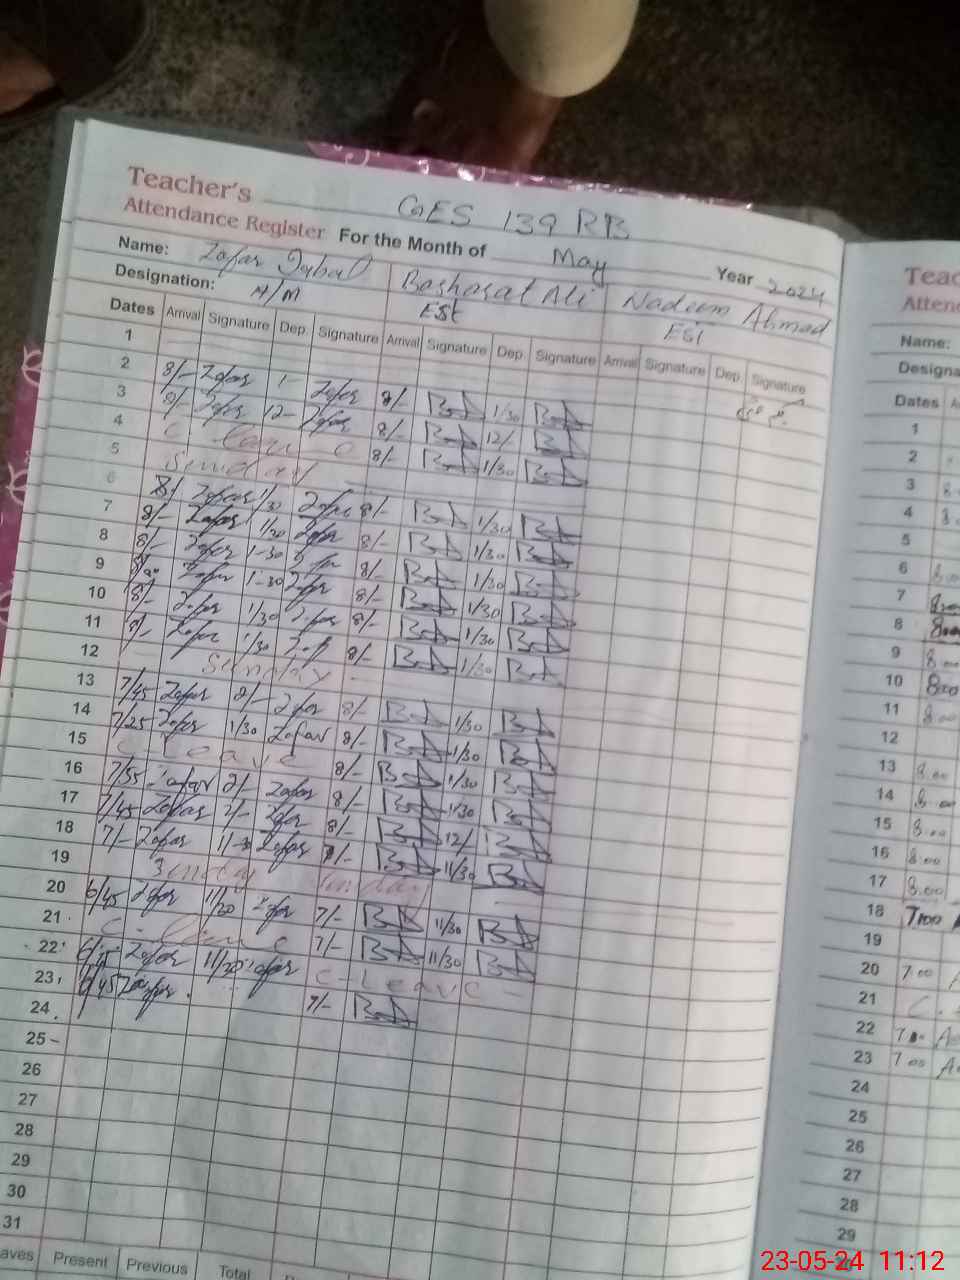 Teacher's GES 139 RB
Attendance Register For the Month of May Year 2024
Name: Zafar Iqbal Basharat Ali Nadeem Ahmad
Designation: H/M ESE EST
Dates Arrival Signature Dep. Signature Arrival Signature Dep. Signature Arrival Signature Dep. Signature
1
2 8/- Zafar 1- Zafar 8/- 1/30
3 8/- Zafar 12- Zafar 8/- 12/
4 C. 8/- 1/30
5 Sunday
6 8/ Zafar 1/30 Zafar 8/- 1/30
7 8/- Zafar 1/30 Zafar 8/- 1/30
8 8/- Zafar 1-30 8/- 1/30
9 Zafar 1-30 Zafar 8/- 1/30
10 8/- Zafar 1/30 Zafar 8/- 1/30
11 8/- Zafar 1/30 8/- 1/30
12 Sunday
13 7/45 Zafar 2/- Zafar 8/- 1/30
14 7/25 Zafar 1/30 Zafar 8/- 1/30
15 C-Leave 8/- 1/30
16 7/55 Zafar 2/- Zafar 8/- 1/30
17 7/45 Zafar 2/- Zafar 8/- 12/
18 7/- Zafar 11/-30 Zafar 7/- 11/30
19 Sunday Sunday
20 6/45 Zafar 11/30 Zafar 7/- 11/30
21 C- 7/- 11/30
22 6/45 Zafar 11/30 Zafar C-Leave-
23 6/45 Zafar 7/-
24
25
26
27
28
29
30
31
aves Present Previous Total
Teac
Attend
Name:
Designa
Dates A
1
2
3 8.0
4 8.
5
6 8.00
7 8.00
8 8.00
9 8.00
10 8.00
11 8.00
12
13 8.00
14 8.00
15 8.00
16 8.00
17 8.00
18 7.00
19
20 7.00
21 C.
22 7.00
23 7.00
24
25
26
27
28
29
23-05-24 11:12